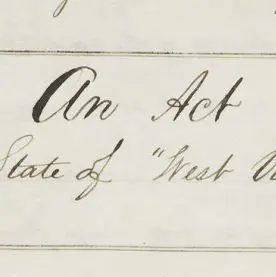 An Act
State of "West